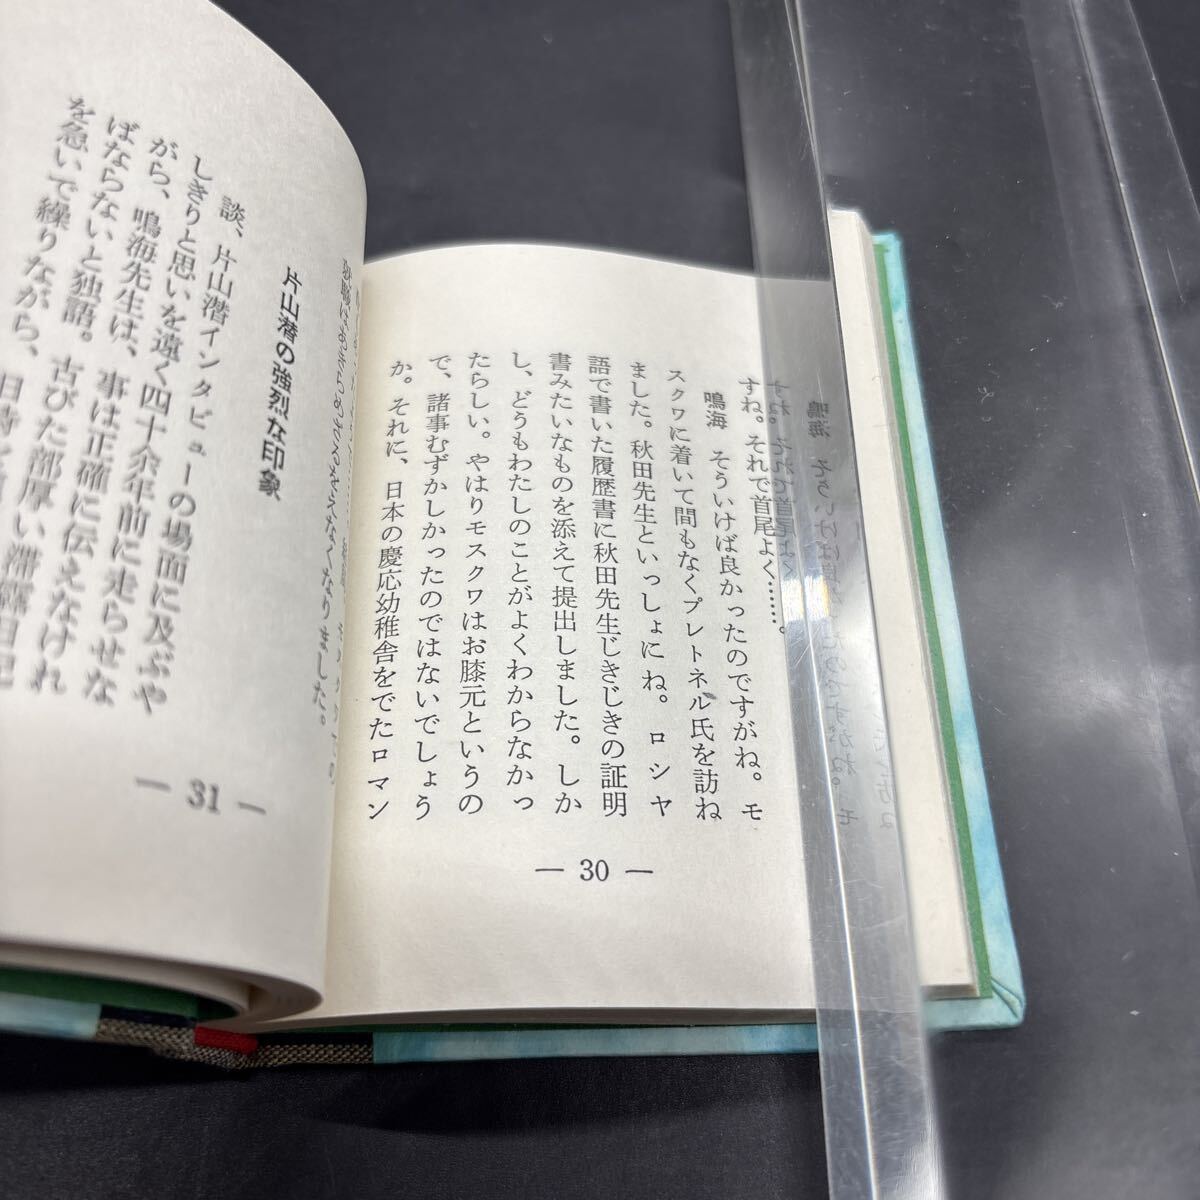 すね。それで首尾よく……。
鳴海　そういけば良かったのですがね。モ
スクワに着いて間もなくプレトネル氏を訪ね
ました。秋田先生といっしょにね。ロシヤ
語で書いた履歴書に秋田先生じきじきの証明
書みたいなものを添えて提出しました。しか
し、どうもわたしのことがよくわからなかっ
たらしい。やはりモスクワはお膝元というの
で、諸事むずかしかったのではないでしょう
か。それに、日本の慶応幼稚舎をでたロマン
— 30 —
片山潜の強烈な印象
談、片山潜インタビューの場面に及ぶや
しきりと思いを遠く四十余年前に走らせな
がら、鳴海先生は、事は正確に伝えなけれ
ばならないと独語。古びた部厚い滞露日記
を急いで繰りながら、日時
— 31 —